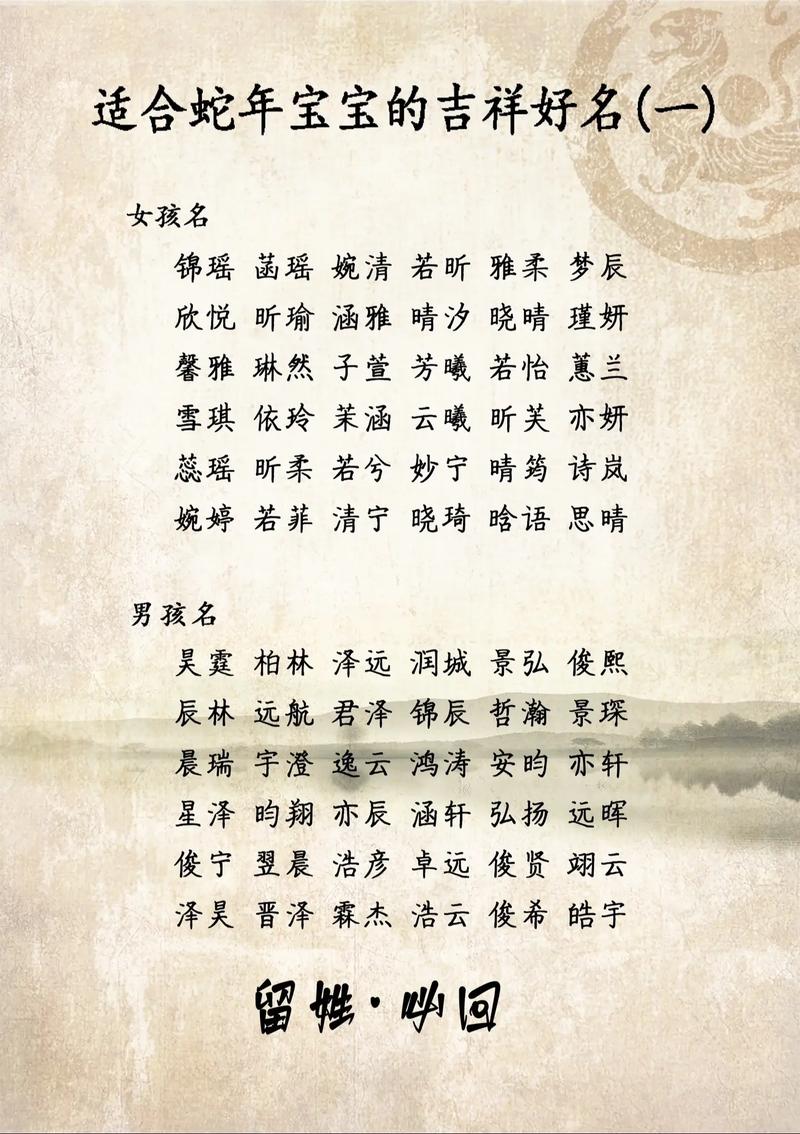 适合蛇年宝宝的吉祥好名(一)
女孩名
锦瑶 菡瑶 婉清 若昕 雅柔 梦辰
欣悦 昕瑜 涵雅 晴汐 晓晴 瑾妍
馨雅 琳然 子萱 芳曦 若怡 蕙兰
雪琪 依玲 茉涵 云曦 昕芙 亦妍
蕊瑶 昕柔 若兮 妙宁 晴筠 诗岚
婉婷 若菲 清宁 晓琦 晗语 思晴
男孩名
昊霆 柏林 泽远 润城 景弘 俊熙
辰林 远航 君泽 锦辰 哲瀚 景琛
晨瑞 宇澄 逸云 鸿涛 安昀 亦轩
星泽 昀翔 亦辰 涵轩 弘扬 远晖
俊宁 翌晨 浩彦 卓远 俊贤 翊云
泽昊 晋泽 霖杰 浩云 俊希 皓宇
留姓·必回